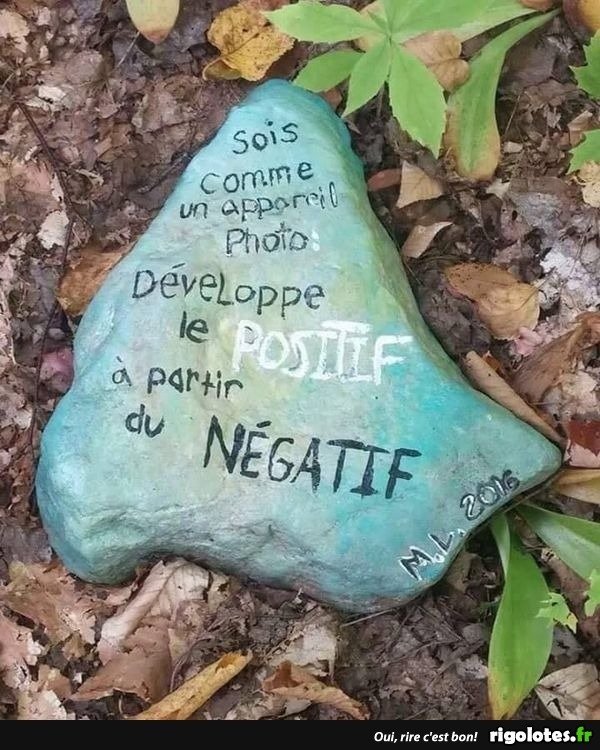 Sois
comme
un appareil
Photo:
Développe
le POSITIF
à partir
du NÉGATIF
M.L. 2016
Oui, rire c'est bon! rigolotes.fr